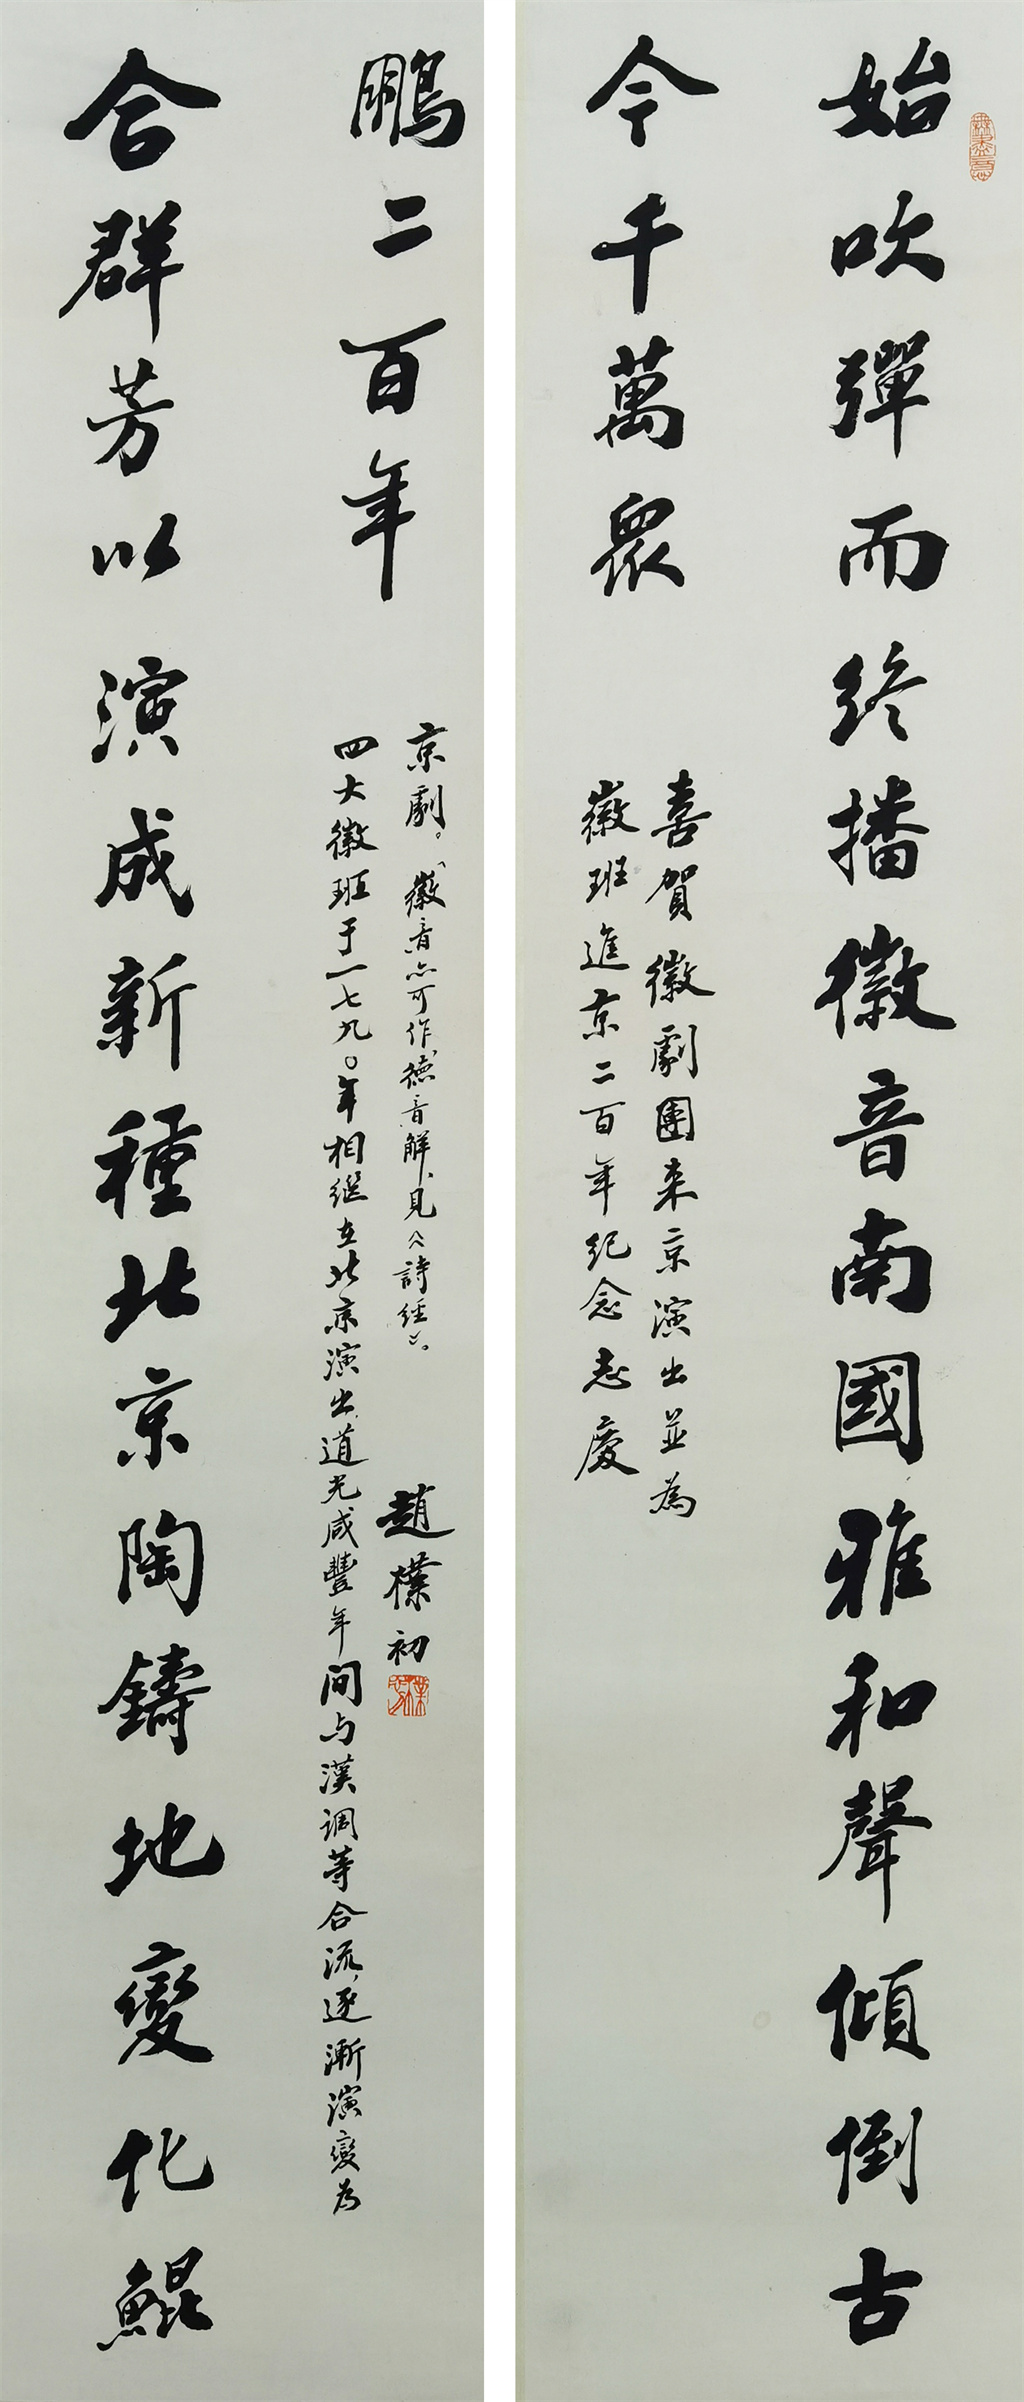 始吹彈而終播徽音南國雅和聲傾倒古
今千萬眾
喜賀徽劇團来京演出並為
徽班進京二百年紀念志慶
合群芳以演成新種北京陶鑄地變化鯤
鵬二百年
四大徽班于一七九〇年相继在北京演出,道光咸豐年间与漢調等合流,逐漸演變为
京劇。“徽音”亦可作“德音”解,見《詩経》。
趙樸初
樸初